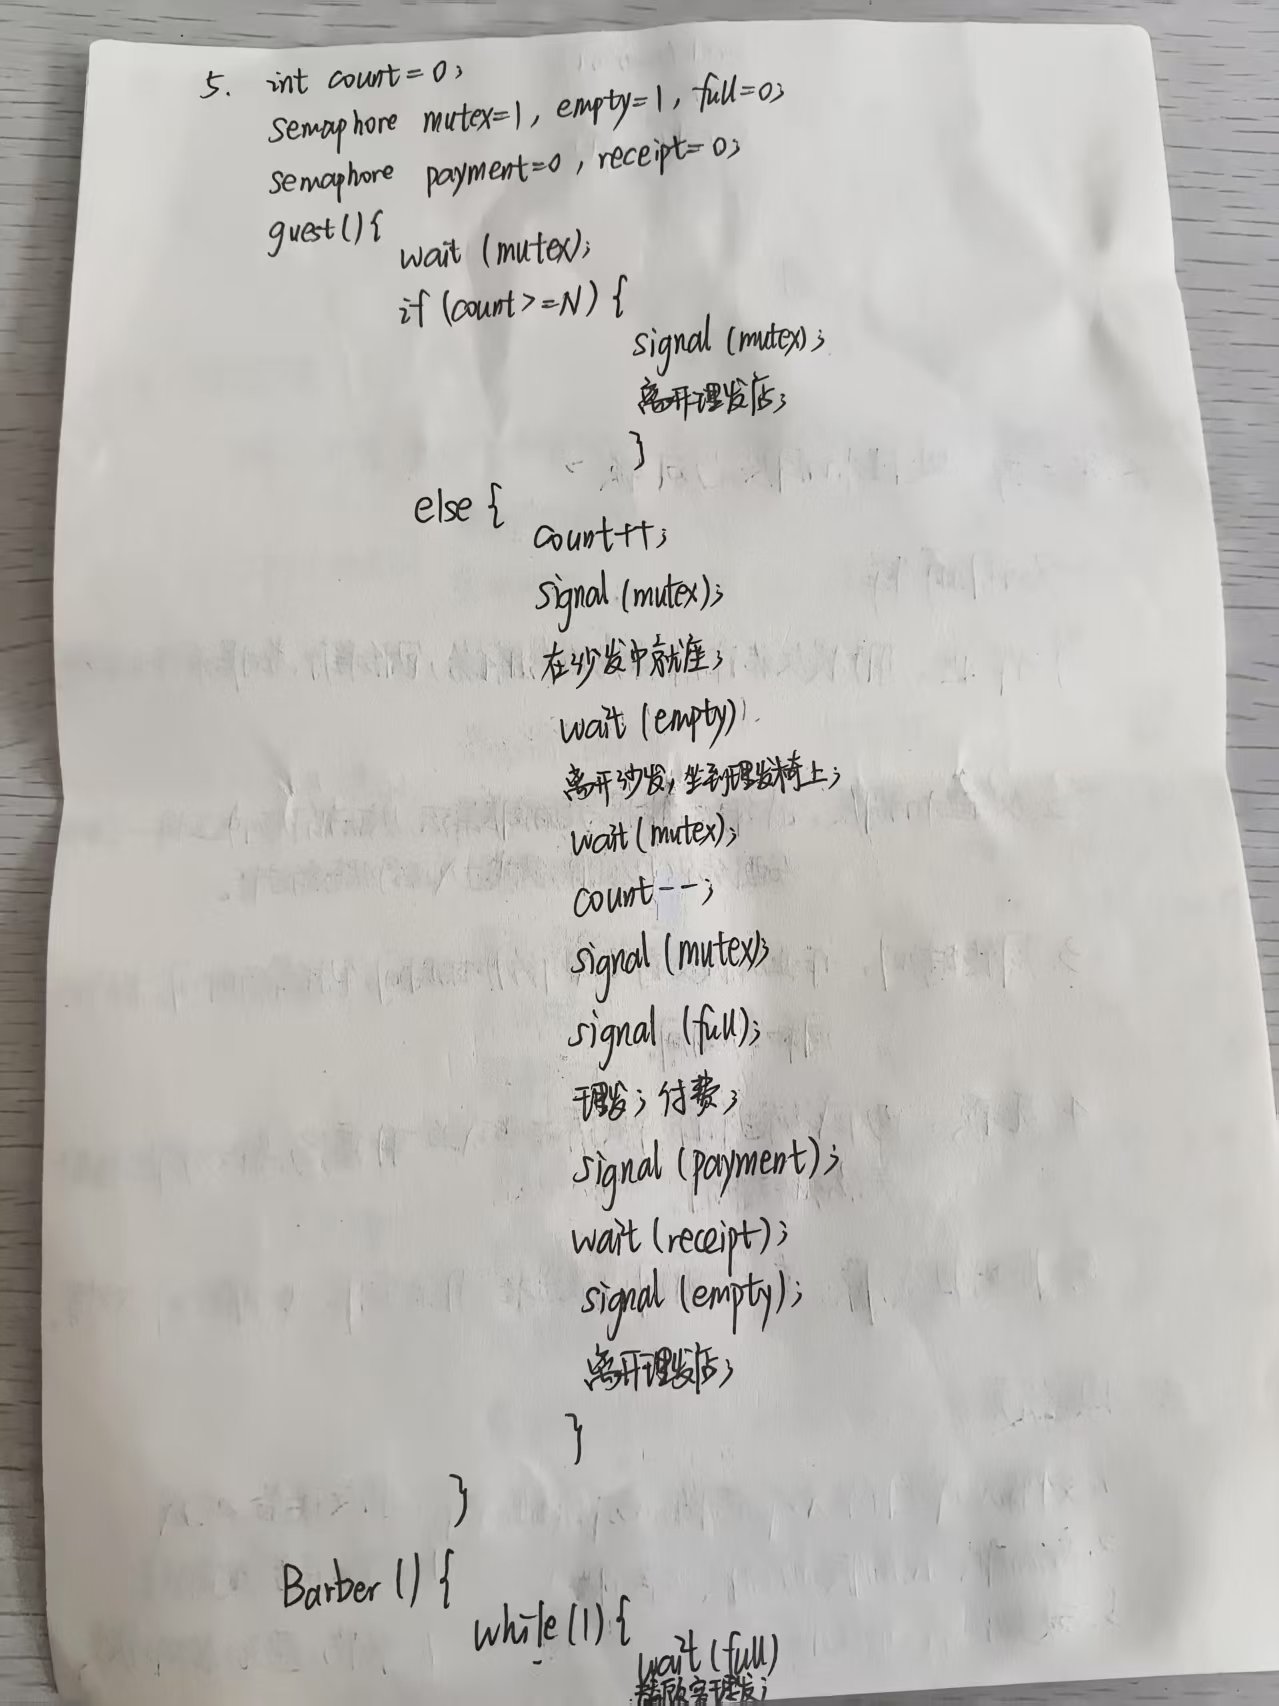 5. int count=0;
semaphore mutex=1, empty=1, full=0;
semaphore payment=0, receipt=0;
guest(){
wait (mutex);
if (count>=N) {
signal (mutex);
离开理发店;
}
else {
count++;
signal (mutex);
在沙发中就座;
wait (empty);
离开沙发,坐到理发椅上;
wait (mutex);
count--;
signal (mutex);
signal (full);
理发;付费;
signal (payment);
wait (receipt);
signal (empty);
离开理发店;
}
}
Barber () {
while (1) {
wait (full)
替顾客理发;